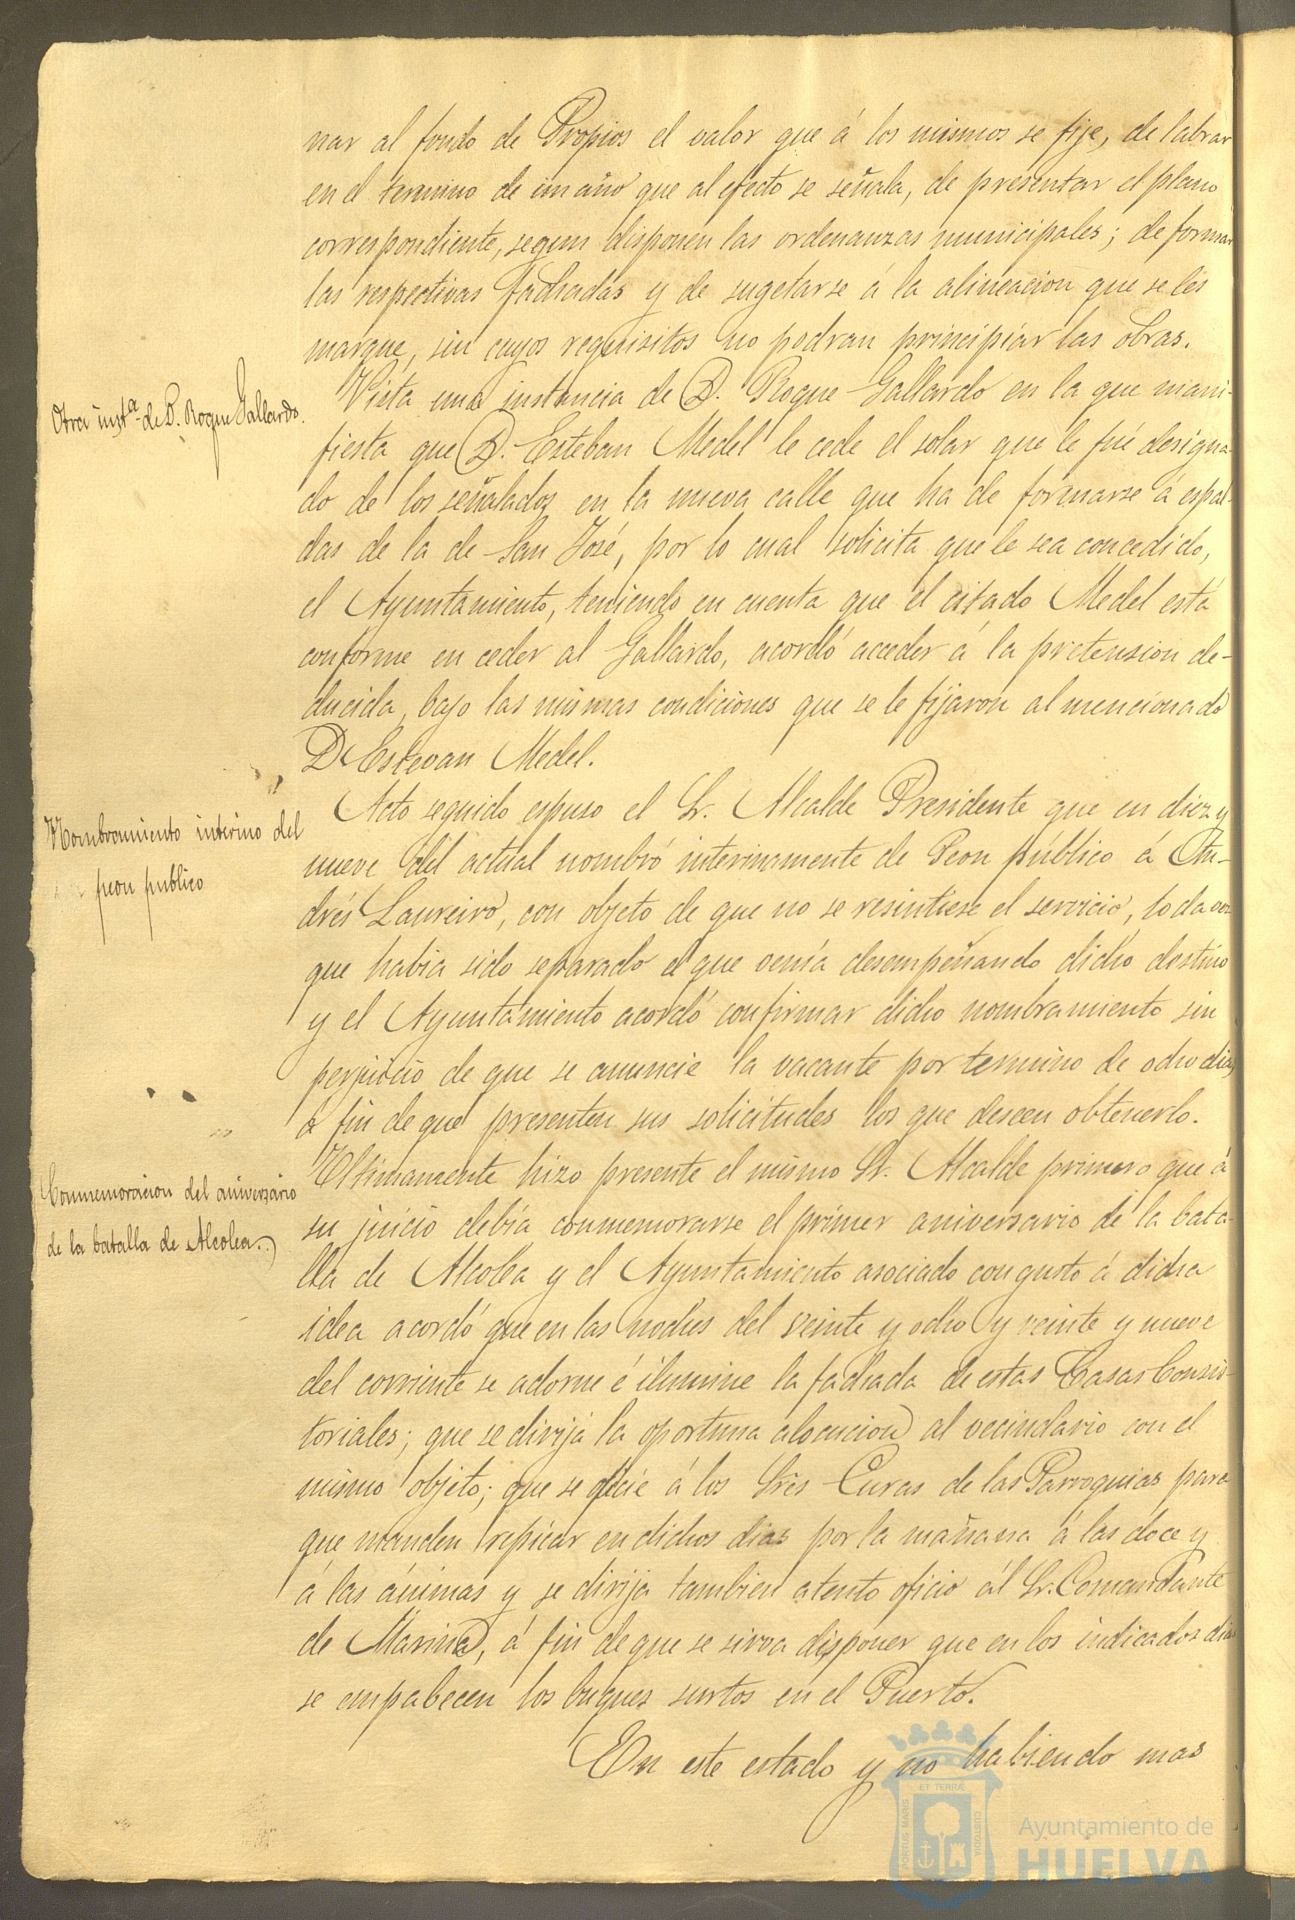 nar al fondo de Propios el valor que á los mismos se fije, de labrar
en el termino de un año que al efecto se señala, de presentar el plano
correspondiente, segun disponen las ordenanzas municipales; de formar
las respectivas fachadas y de sugetarse á la alineacion que se les
marque, sin cuyos requisitos no podran principiar las obras.
Otra inst.ª de D. Roque Gallardo.
Vista una instancia de D. Roque Gallardo en la que mani-
fiesta que D. Esteban Medel le cede el solar que le fué designa-
do de los señalados en la nueva calle que ha de formarse á espal-
das de la de San José, por lo cual solicita que le sea concedido,
el Ayuntamiento, teniendo en cuenta que el citado Medel está
conforme en ceder al Gallardo, acordó acceder á la pretension de-
ducida, bajo las mismas condiciones que se le fijaron al mencionado
D Estevan Medel.
Nombramiento interino del
peon publico
Acto seguido espuso el Sr. Alcalde Presidente que en diez y
nueve del actual nombró interinamente de Peon público á An-
drés Laureiro, con objeto de que no se resintiese el servicio, toda vez
que habia sido separado el que venía desempeñando dicho destino
y el Ayuntamiento acordó confirmar dicho nombramiento sin
perjuicio de que se anuncie la vacante por termino de ocho dias
a fin de que presenten sus solicitudes los que deseen obtenerlo.
Conmemoracion del aniversario
de la batalla de Alcolea.
Ultimamente hizo presente el mismo Sr. Alcalde primero que á
su juicio debía conmemorarse el primer aniversario de la bata-
lla de Alcolea y el Ayuntamiento asociado con gusto á dicha
idea acordó que en las noches del veinte y ocho y veinte y nueve
del corriente se adorne é ilumine la fachada de estas Casas Consis-
toriales; que se dirija la oportuna alocucion al vecindario con el
mismo objeto; que se oficie á los Sres Curas de las Parroquias para
que manden repicar en dichos dias por la mañana á las doce y
á las ánimas y se dirija tambien atento oficio al Sr. Comandante
de Marina, á fin de que se sirva disponer que en los indicados dias
se empabecen los buques surtos en el Puerto.
En este estado y no habiendo mas
PORTUS MARIS ET TERRÆ CUSTODIA
Ayuntamiento de
HUELVA